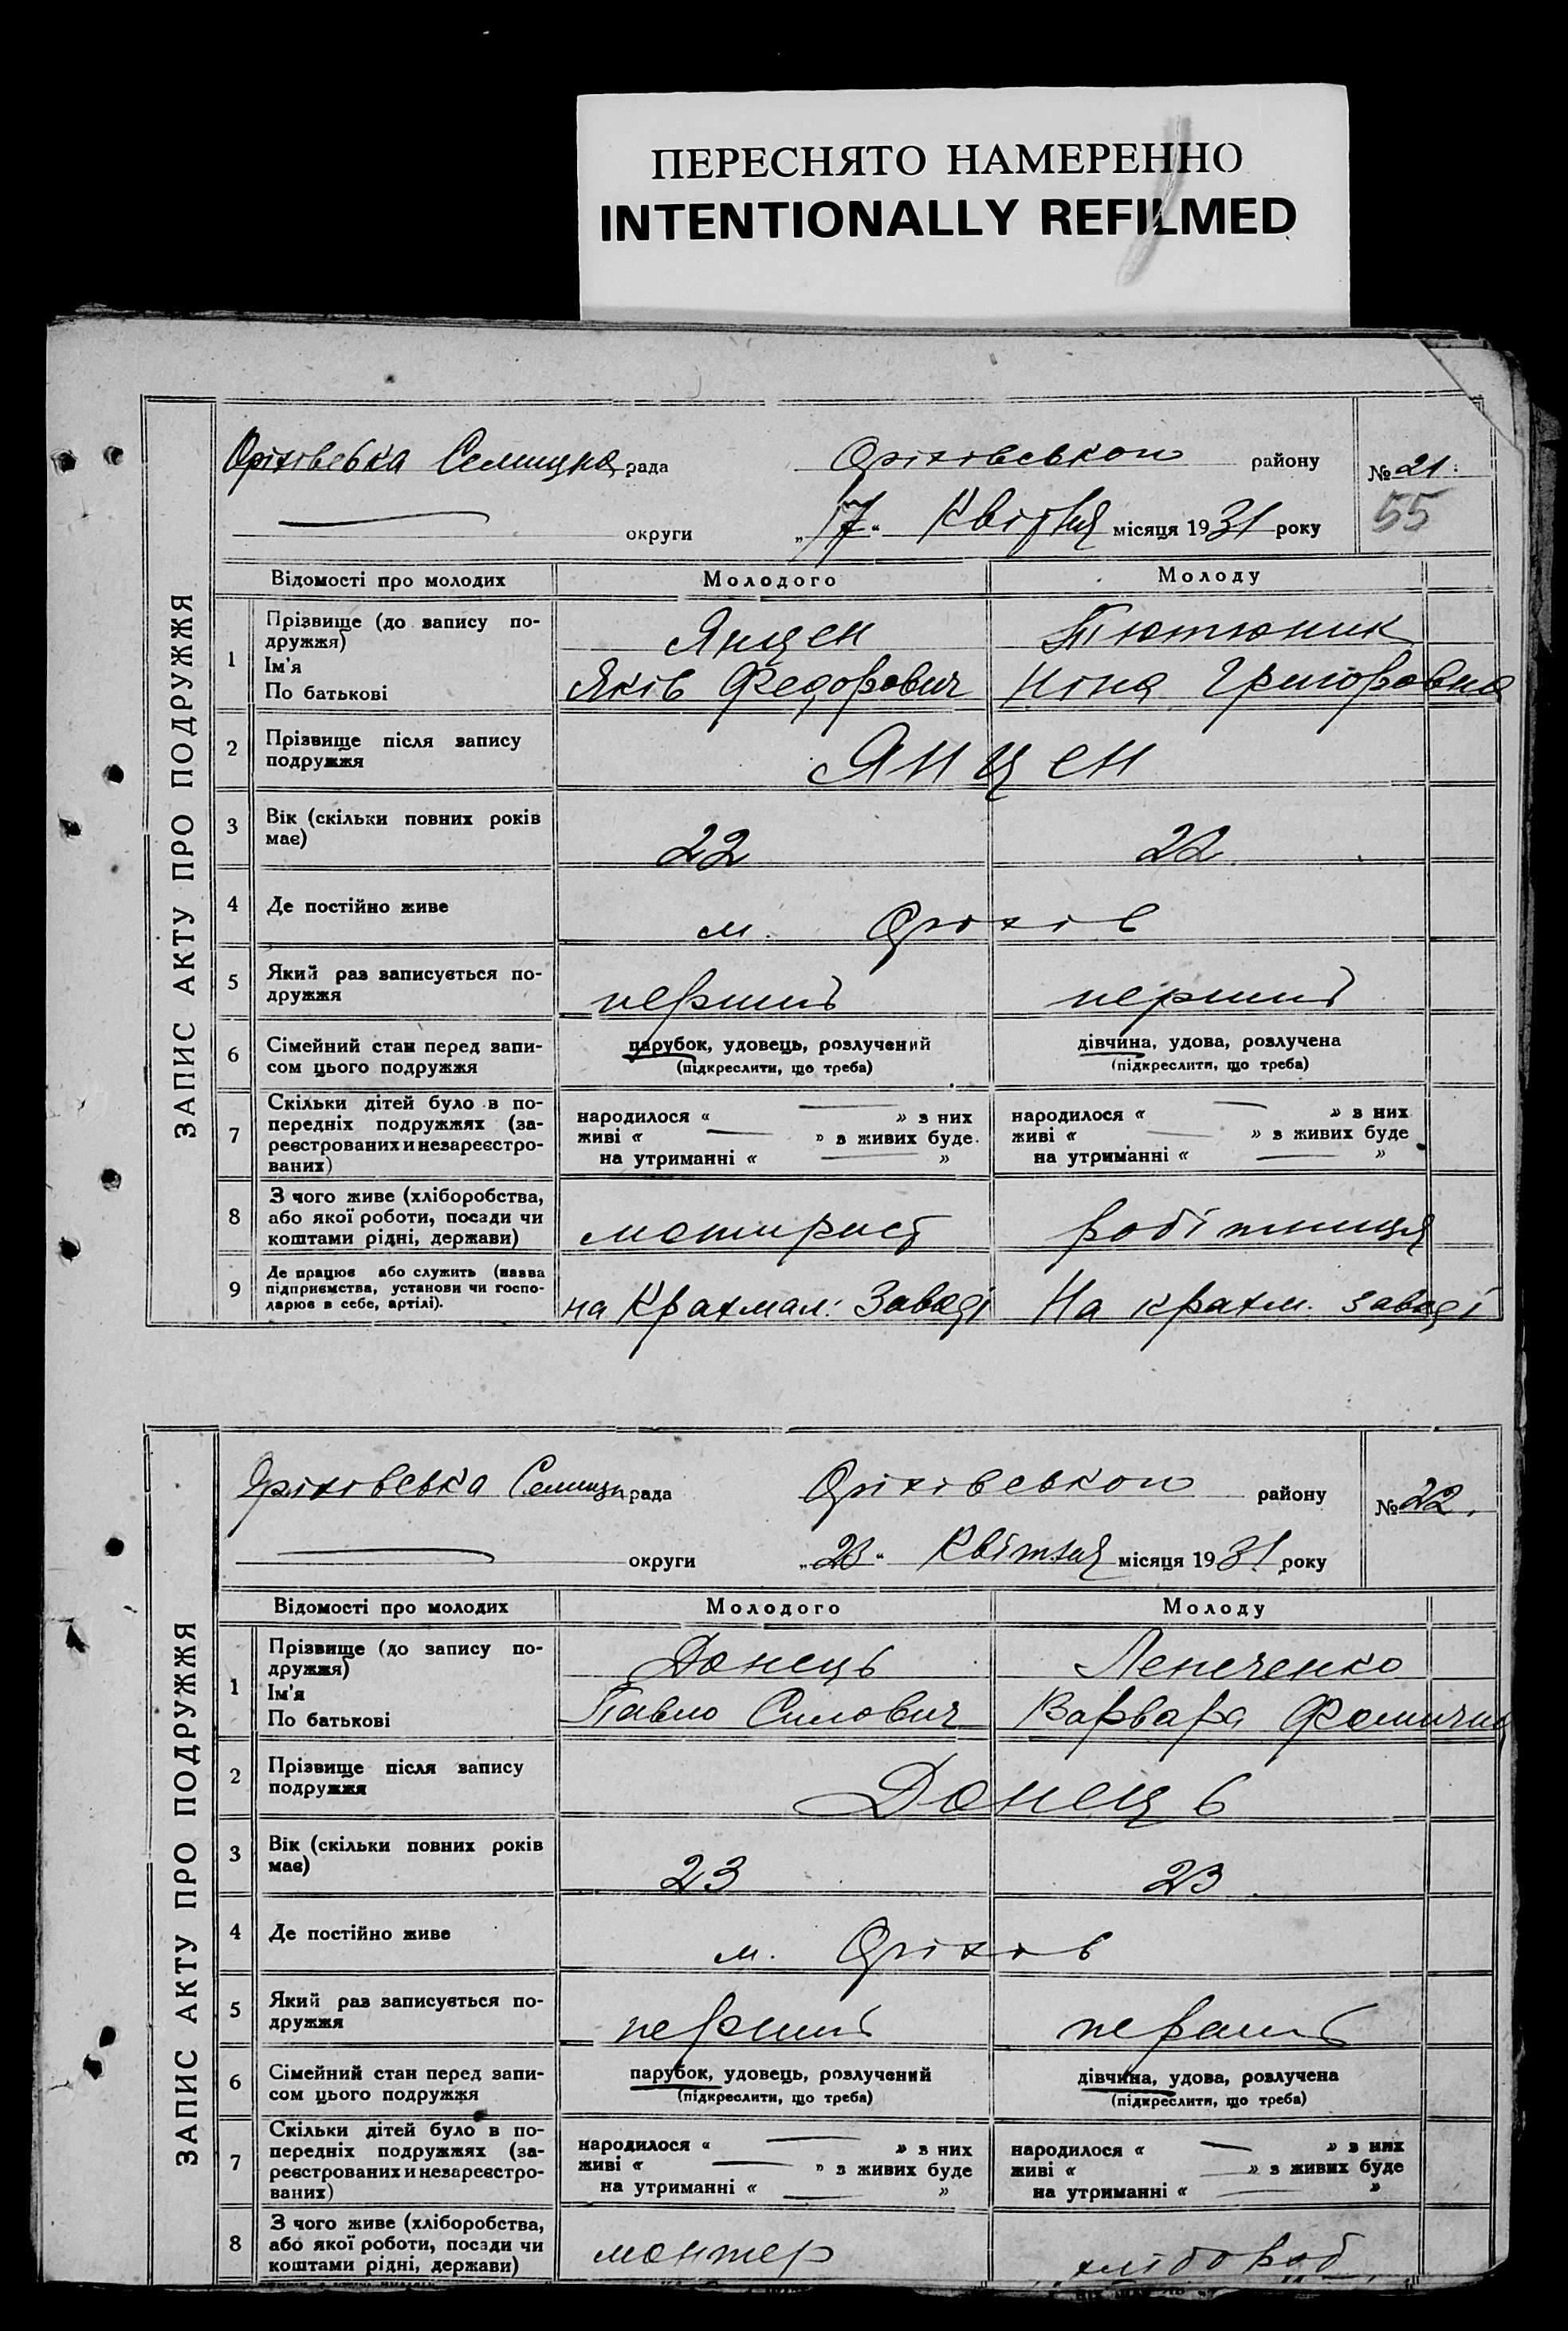 ПЕРЕСНЯТО НАМЕРЕННО
INTENTIONALLY REFILMED
ЗАПИС АКТУ ПРО ПОДРУЖЖЯ
Оріхівська Селищна рада Оріхівського району № 21.
округи „17“ Квітня місяця 1931 року 55
Відомості про молодих Молодого Молоду
1 Прізвище (до запису по-
дружжя) Янцен Тютюник
Ім'я
По батькові Яків Федорович Ніна Григоровна
2 Прізвище після запису
подружжя Янцен
3 Вік (скільки повних років
має) 22 22
4 Де постійно живе м. Оріхів
5 Який раз записується по-
дружжя перший перший
6 Сімейний стан перед запи-
сом цього подружжя
парубок, удовець, розлучений дівчина, удова, розлучена
(підкреслити, що треба) (підкреслити, що треба)
7 Скільки дітей було в по-
передніх подружжях (за-
реєстрованих и незареєстро-
ваних)
народилося « » з них народилося « » з них
живі « » з живих буде живі « » з живих буде
на утриманні « » на утриманні « »
8 З чого живе (хліборобства,
або якої роботи, посади чи
коштами рідні, держави) робітниця
9 Де працює або служить (назва
підприємства, установи чи госпо-
дарює в себе, артілі).
на Крахмал. Заводі На крахм. заводі
ЗАПИС АКТУ ПРО ПОДРУЖЖЯ
Оріхівська Селищн рада Оріхівського району № 22.
округи „23“ Квітня місяця 1931 року
Відомості про молодих Молодого Молоду
1 Прізвище (до запису по-
дружжя) Донець Лепеченко
Ім'я
По батькові Павло Силович Варвара Фомична
2 Прізвище після запису
подружжя Донець
3 Вік (скільки повних років
має) 23 23
4 Де постійно живе м. Оріхів
5 Який раз записується по-
дружжя перший перший
6 Сімейний стан перед запи-
сом цього подружжя
парубок, удовець, розлучений дівчина, удова, розлучена
(підкреслити, що треба) (підкреслити, що треба)
7 Скільки дітей було в по-
передніх подружжях (за-
реєстрованих и незареєстро-
ваних)
народилося « » з них народилося « » з них
живі « » з живих буде живі « » з живих буде
на утриманні « » на утриманні « »
8 З чого живе (хліборобства,
або якої роботи, посади чи
коштами рідні, держави) монтер хлібороб